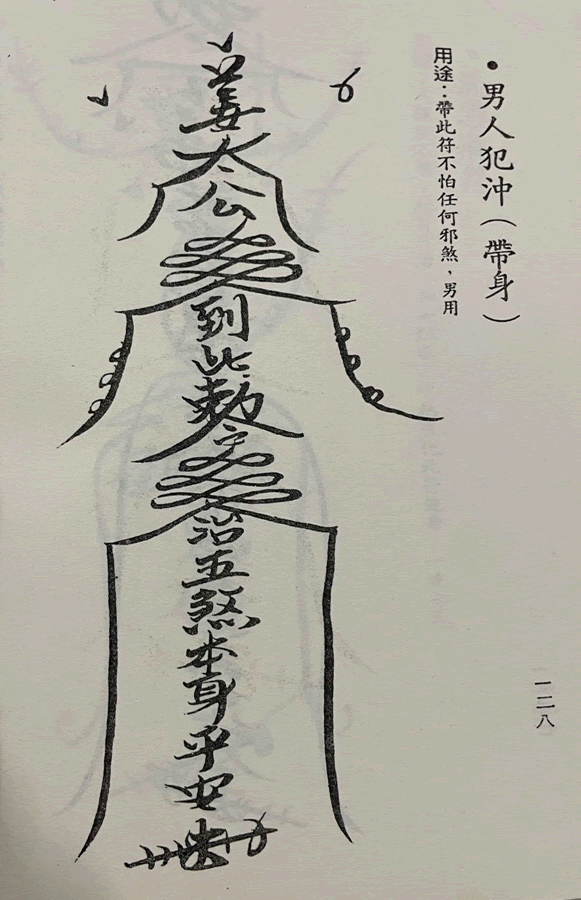 •男人犯沖（帶身）
用途：帶此符不怕任何邪煞，男用
姜太公
到此敕令
治五煞本身平安
一二八